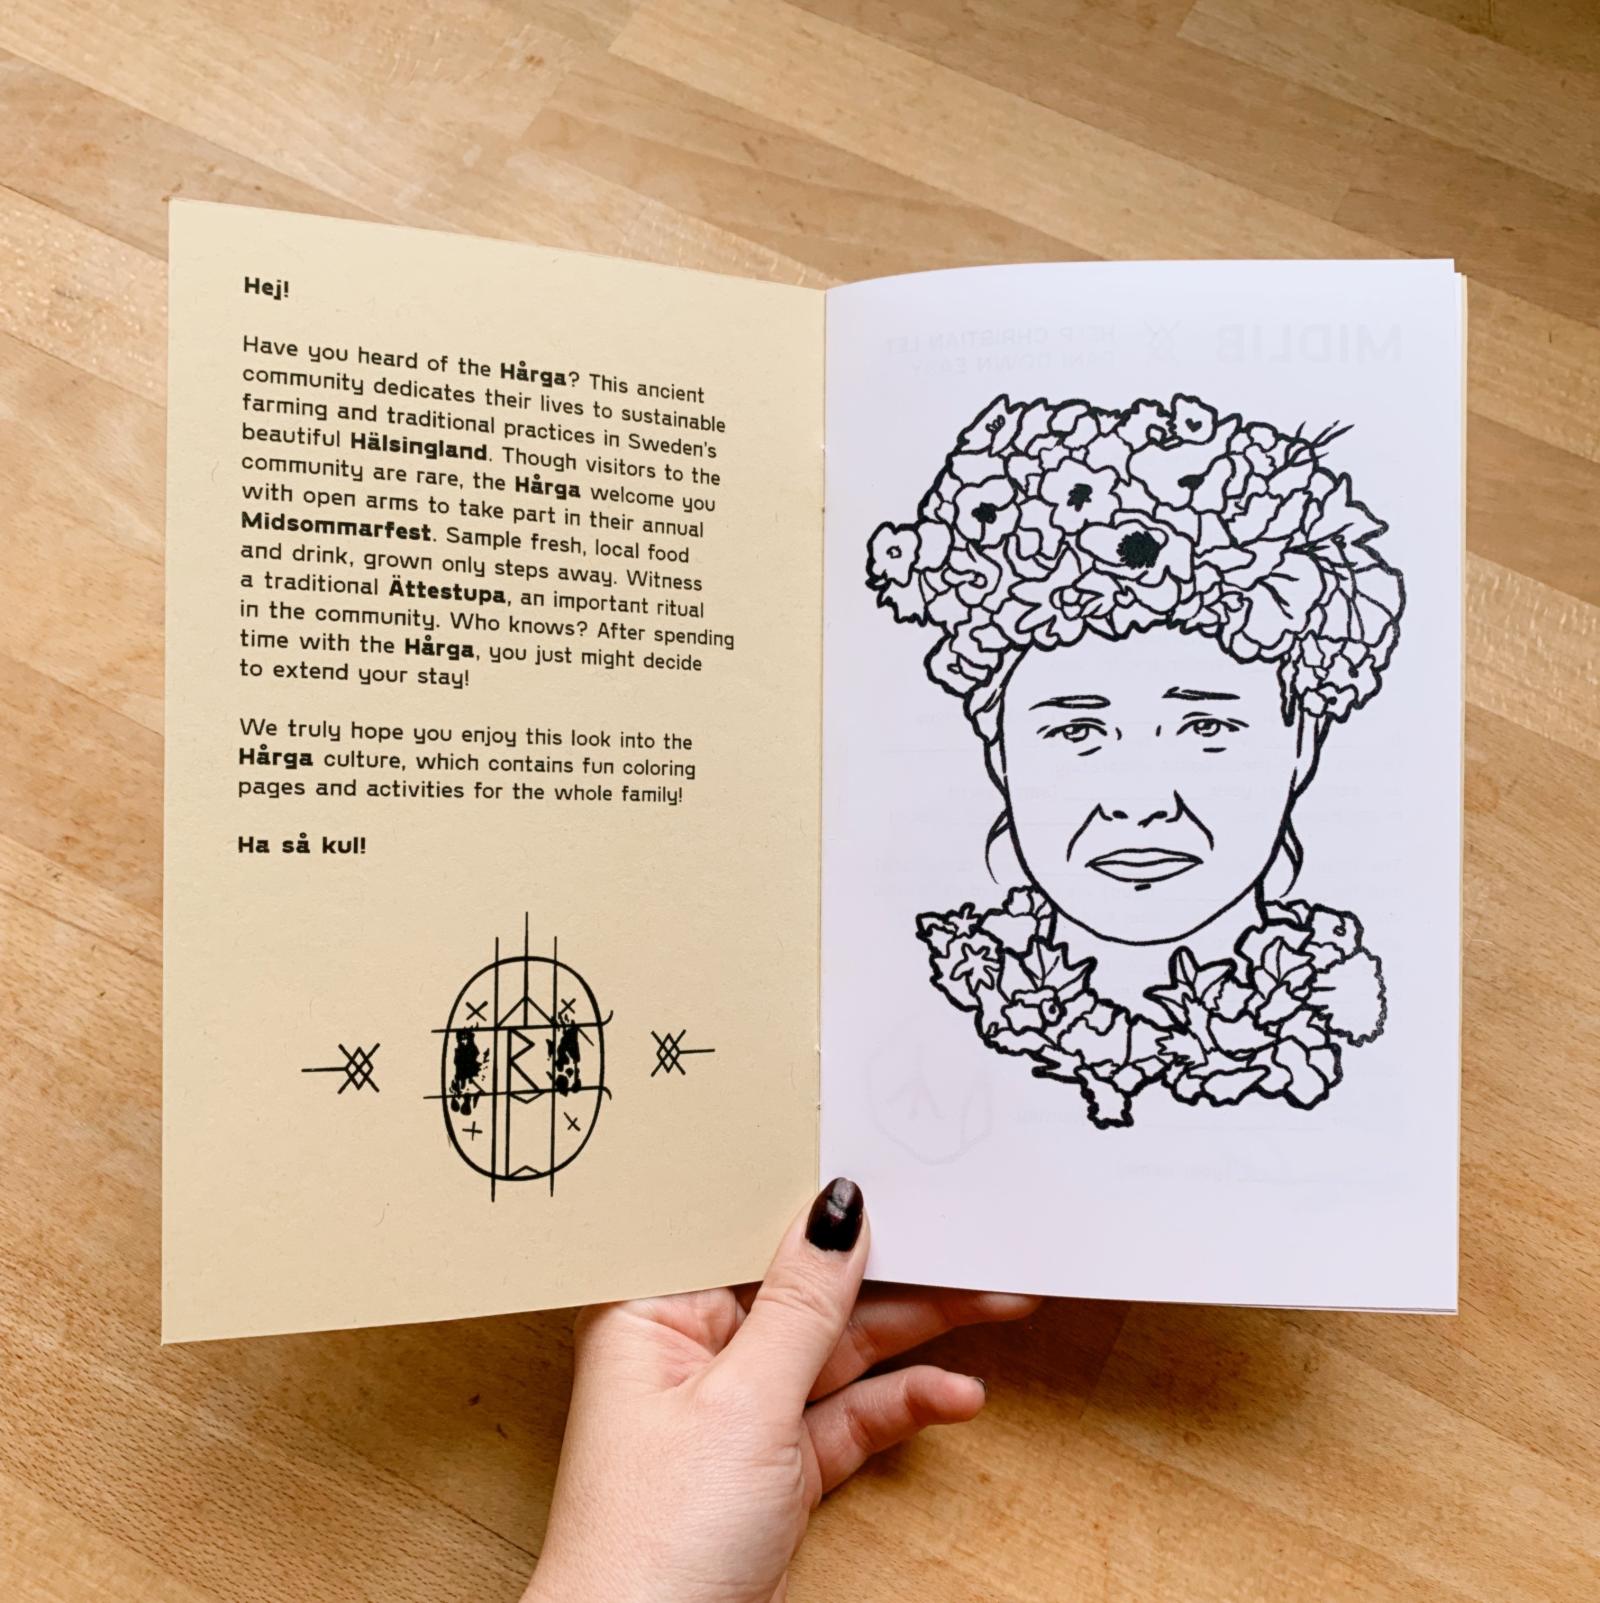 Hej!
Have you heard of the Hårga? This ancient
community dedicates their lives to sustainable
farming and traditional practices in Sweden's
beautiful Hälsingland. Though visitors to the
community are rare, the Hårga welcome you
with open arms to take part in their annual
Midsommarfest. Sample fresh, local food
and drink, grown only steps away. Witness
a traditional Ättestupa, an important ritual
in the community. Who knows? After spending
time with the Hårga, you just might decide
to extend your stay!
We truly hope you enjoy this look into the
Hårga culture, which contains fun coloring
pages and activities for the whole family!
Ha så kul!
MIDLIB
HELP CHRISTIAN LET
DANI DOWN EASY